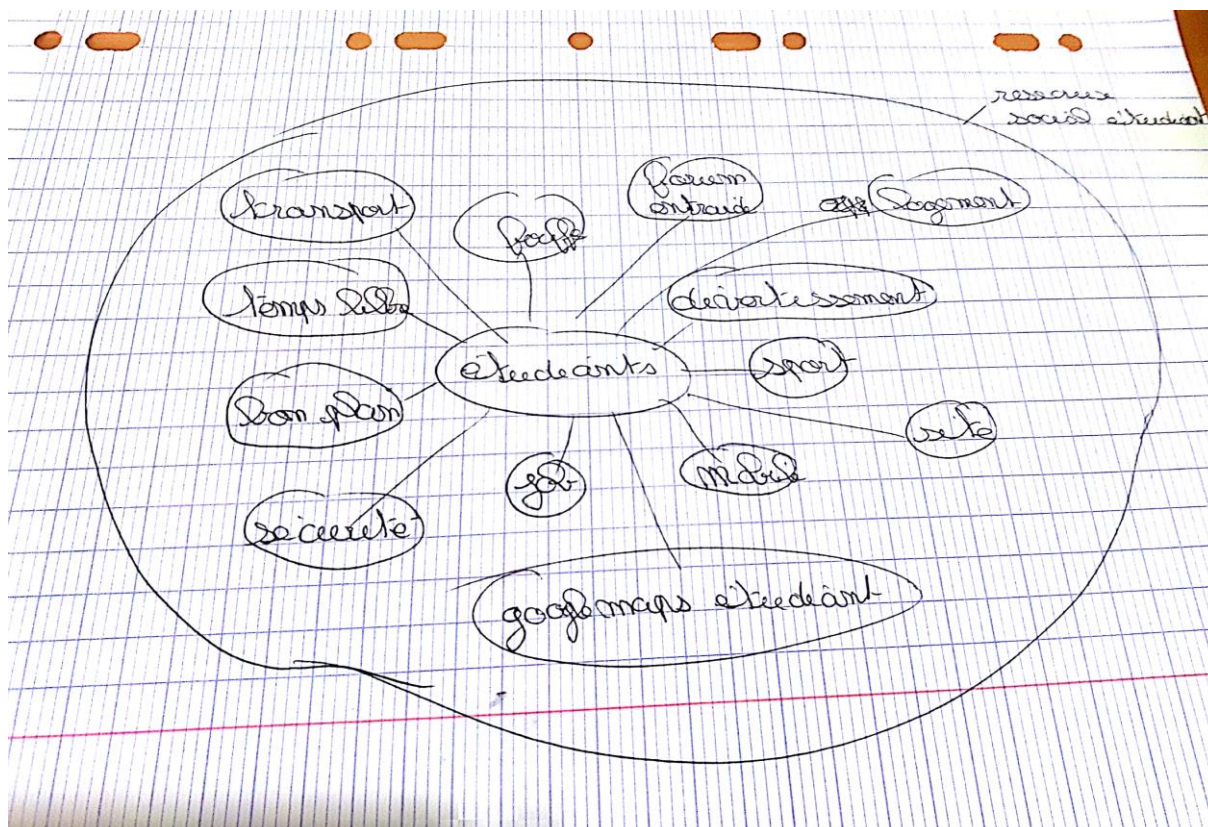 reseaux
social étudiant
transport
bouffe
forum
entraide
logement
temps libre
divertissement
étudiants
sport
bon plan
site
job
mobile
sécurité
google maps étudiant